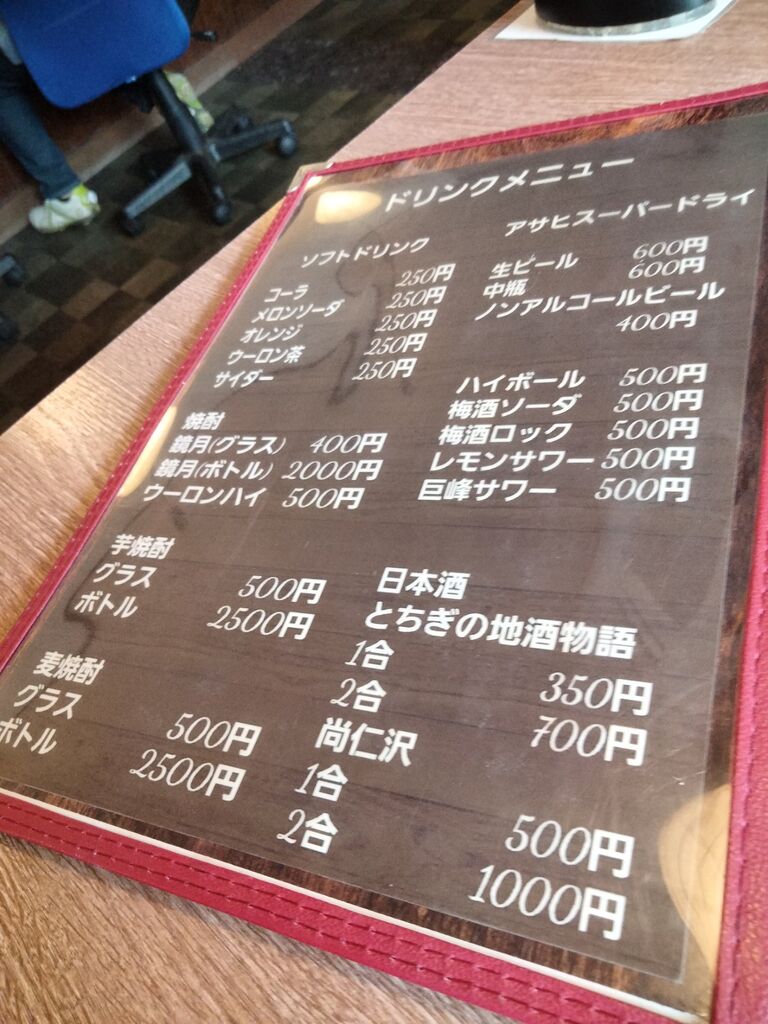 ドリンクメニュー
ソフトドリンク
コーラ 250円
メロンソーダ 250円
オレンジ 250円
ウーロン茶 250円
サイダー 250円
焼酎
鏡月(グラス) 400円
鏡月(ボトル) 2000円
ウーロンハイ 500円
芋焼酎
グラス 500円
ボトル 2500円
麦焼酎
グラス 500円
ボトル 2500円
アサヒスーパードライ
生ビール 600円
中瓶 600円
ノンアルコールビール
400円
ハイボール 500円
梅酒ソーダ 500円
梅酒ロック 500円
レモンサワー 500円
巨峰サワー 500円
日本酒
とちぎの地酒物語
1合 350円
2合 700円
尚仁沢
1合 500円
2合 1000円